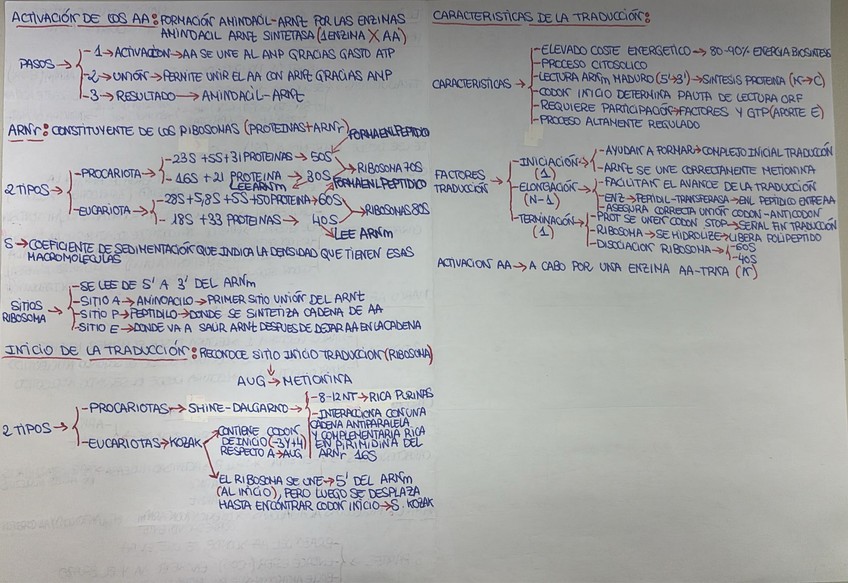 ACTIVACIÓN DE LOS AA: FORMACIÓN AMINOACIL-ARNt POR LAS ENZIMAS
AMINOACIL ARNt SINTETASA (1 ENZIMA X AA)
PASOS →
- 1 → ACTIVACIÓN → AA SE UNE AL AMP GRACIAS GASTO ATP
- 2 → UNIÓN → PERMITE UNIR EL AA CON ARNt GRACIAS AMP
- 3 → RESULTADO → AMINOACIL-ARNt
ARNr: CONSTITUYENTE DE LOS RIBOSOMAS (PROTEINAS + ARNr)
FORMA ENL PEPTIDICO
2 TIPOS →
- PROCARIOTA →
- 23S + 5S + 31 PROTEINAS → 50S
- 16S + 21 PROTEINA → 30S
→ RIBOSOMA 70S
LEE ARNm
FORMA ENL PEPTIDICO
- EUCARIOTA →
- 28S + 5,8S + 5S + 50 PROTEINA → 60S
- 18S + 33 PROTEINAS → 40S
→ RIBOSOMAS 80S
LEE ARNm
S → COEFICIENTE DE SEDIMENTACIÓN QUE INDICA LA DENSIDAD QUE TIENEN ESAS
MACROMOLECULAS
SITIOS RIBOSOMA →
- SE LEE DE 5' A 3' DEL ARNm
- SITIO A → AMINOACILO → PRIMER SITIO UNIÓN DEL ARNt
- SITIO P → PEPTIDILO → DONDE SE SINTETIZA CADENA DE AA
- SITIO E → DONDE VA A SALIR ARNt DESPUES DE DEJAR AA EN LA CADENA
INICIO DE LA TRADUCCIÓN: RECONOCE SITIO INICIO TRADUCCION (RIBOSOMA)
AUG → METIONINA
2 TIPOS →
- PROCARIOTAS → SHINE-DALGARNO →
- 8-12 NT → RICA PURINAS
- INTERACCIONA CON UNA
CADENA ANTIPARALELA
Y COMPLEMENTARIA RICA
EN PIRIMIDINA DEL
ARNr 16S
- EUCARIOTAS → KOZAK
CONTIENE CODON
DE INICIO (-3 Y +4)
RESPECTO A → AUG
EL RIBOSOMA SE UNE → 5' DEL ARNm
(AL INICIO), PERO LUEGO SE DESPLAZA
HASTA ENCONTRAR CODON INICIO → S. KOZAK
CARACTERISTICAS DE LA TRADUCCIÓN:
CARACTERISTICAS →
- ELEVADO COSTE ENERGETICO → 80-90% ENERGIA BIOSINTESIS
- PROCESO CITOSOLICO
- LECTURA ARNm MADURO (5' → 3') → SINTESIS PROTEINA (N → C)
- CODON INICIO DETERMINA PAUTA DE LECTURA ORF
- REQUIERE PARTICIPACIÓN → FACTORES Y GTP (APORTE E)
- PROCESO ALTAMENTE REGULADO
FACTORES TRADUCCIÓN →
- INICIACIÓN → (1)
- AYUDAR A FORMAR → COMPLEJO INICIAL TRADUCCIÓN
- ARNt SE UNE CORRECTAMENTE METIONINA
- ELONGACIÓN → (N-1)
- FACILITAR EL AVANCE DE LA TRADUCCIÓN
- ENZ → PEPTIDIL-TRANSFERASA → ENL PEPTIDICO ENTRE AA
- ASEGURA CORRECTA UNIÓN CODON-ANTICODON
- TERMINACIÓN → (1)
- PROT SE UNEN CODON STOP → SEÑAL FIN TRADUCCIÓN
- RIBOSOMA → SE HIDROLIZE → LIBERA POLIPEPTIDO
- DISOCIACION RIBOSOMA →
- 60S
- 40S
ACTIVACION AA → A CABO POR UNA ENZIMA AA-TRNA (N)